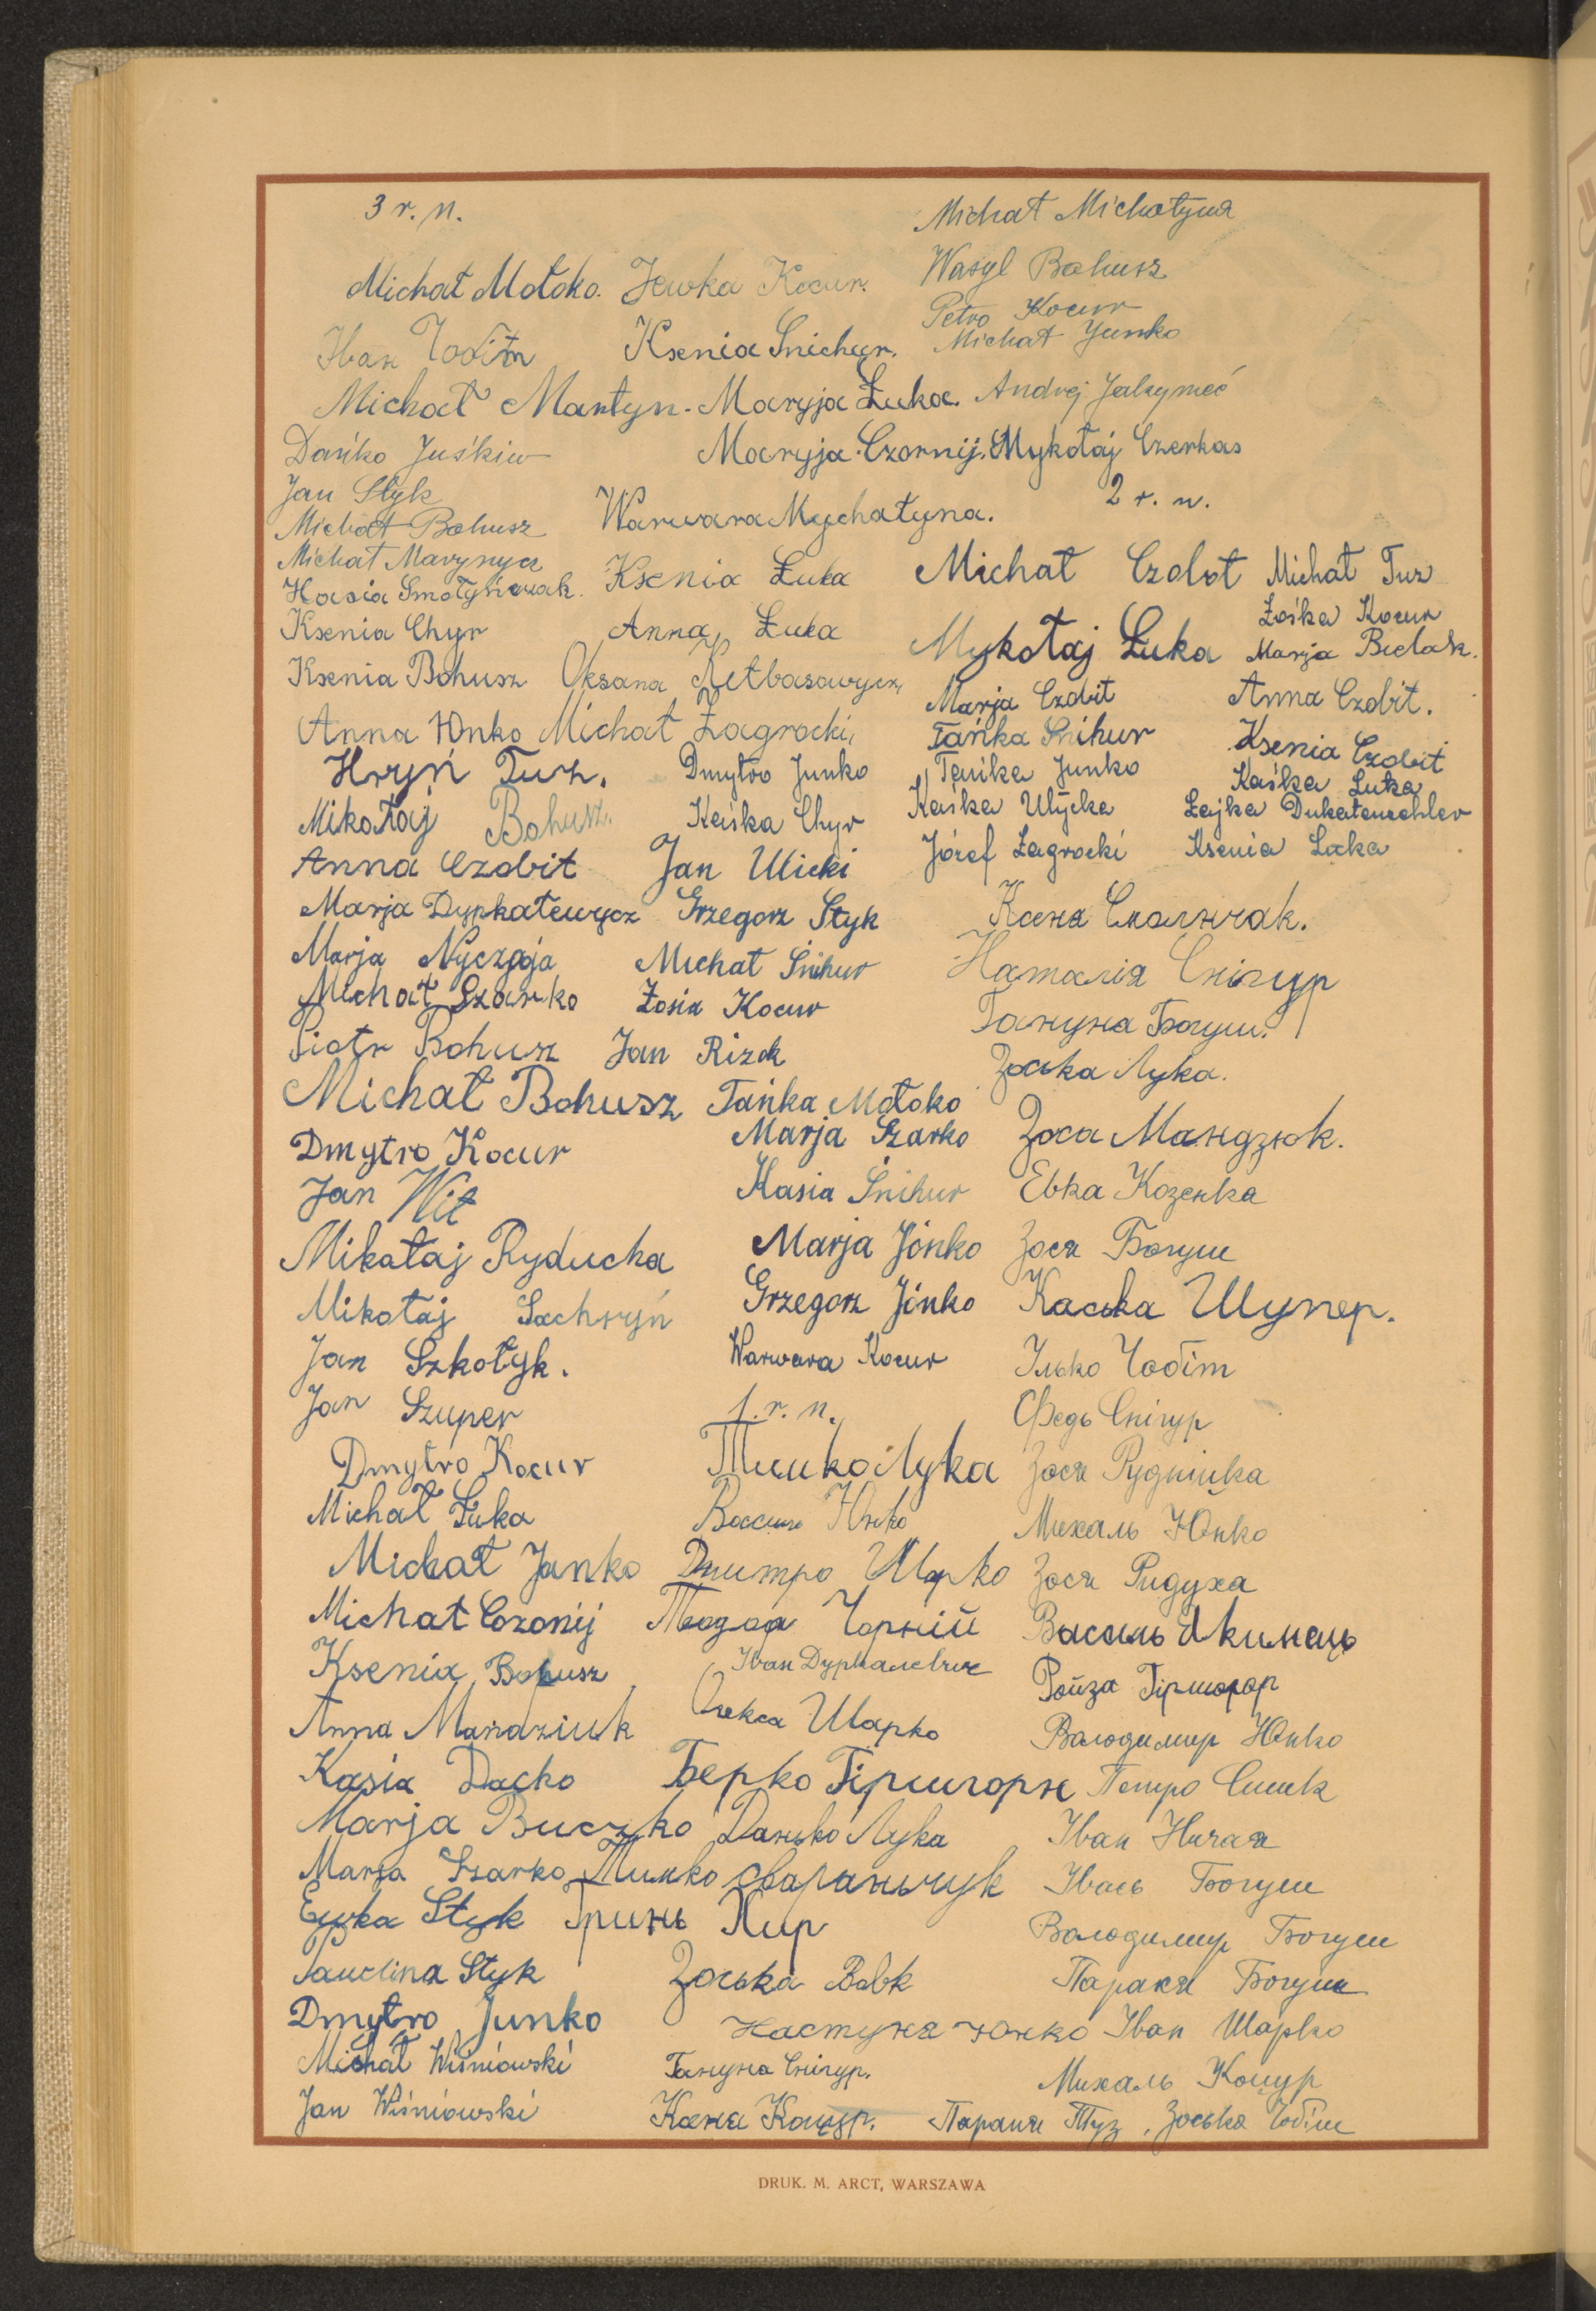 3 r. n.
Michał Mołoko. Jewka Kocur.
Іван Чобіт Ksenia Snichur.
Michał Martyn. Maryja Łuka.
Dańko Juśkiw Maryja Czornij.
Jan Styk
Michał Bohusz Warwara Mychałyna.
Michał Marynycz
Hasia Smolyńczak. Ksenia Łuka
Ksenia Chyr Anna Łuka
Ksenia Bohusz Oksana
Anna Юnko Michał Zagrocki,
Hryń Tuz. Dmytro Junko
Mikołaj Bohusz. Kaśka Chyr
Anna Czobit Jan Ulicki
Marja Dyrkatewycz Grzegorz Styk
Marja Nyczaja Michał Śnihur
Michał Szarko Zosia Kocur
Piotr Bohusz Jan Rizak
Michał Bohusz Tańka Mołoko
Dmytro Kocur Marja Szarko
Jan Wit Kasia Śnihur
Mikołaj Ryducha Marja Jónko
Mikołaj Sachryń Grzegorz Jónko
Jan Szkołyk. Warwara Kocur
Jan Szuper
Dmytro Kocur
Michał Łuka
Michał Janko
Michał Czornij
Ksenia Bohusz
Anna Mandziuk
Kasia Dacko
Marja Buczko
Marja Szarko
Ewka Styk
Paulina Styk
Dmytro Junko
Michał Wiśniowski
Jan Wiśniowski
1. r. n.
Тимко Лука
Василь Юнко
Дмитро Шарко
Теодор Чорній
Іван Дуркалевич
Олекса Шарко
Берко Гіршгорн
Данько Лука
Тимко
Гринь Хир
Зоська Вовк
Настуня Юнко
Гануня Снігур.
Касня Коцур.
Michał Michałyna
Wasyl Bohusz
Petro Kocur
Michał Junko
Andrej Jakymeć
Mykołaj Czerkas
2 r. n.
Michał Czobot Michał Tuz
Zośka Kocur
Mykołaj Łuka Marja Bielak.
Marja Czobit Anna Czobit.
Tańka Snihur Ksenia Czobit
Tańka Junko Kaśka Łuka
Kaśka Ulycka Łajka Dukatenzehler
Józef Zagrocki Ksenia Łuka
Ксеня Смолинчак.
Наталія Снігур
Гануна Богуш.
Зоська Лука.
Зося Мандзюк.
Евка Козенка
Зося Богуш
Каська Шупер.
Ілько Чобіт
Федь Снігур
Зося Рудницка
Михаль Юнко
Зося Ридуха
Василь Якимець
Ройза Гіршгорн
Володимир Юнко
Петро Стик
Іван Ничая
Івась Богуш
Володимир Богуш
Параня Богуш
Іван Шарко
Михаль Коцур
Параня Туз, Зоська Чобіт
DRUK. M. ARCT, WARSZAWA